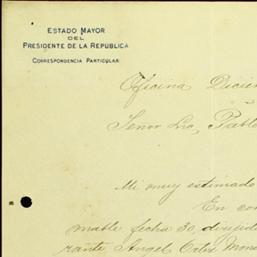 ESTADO MAYOR
DEL
PRESIDENTE DE LA REPUBLICA
CORRESPONDENCIA PARTICULAR
Oficina Dicie
Señor Lic. Pablo
Mi muy estimado
En con
mable fecha 30, dirigida
rante Angel Ortiz Mona